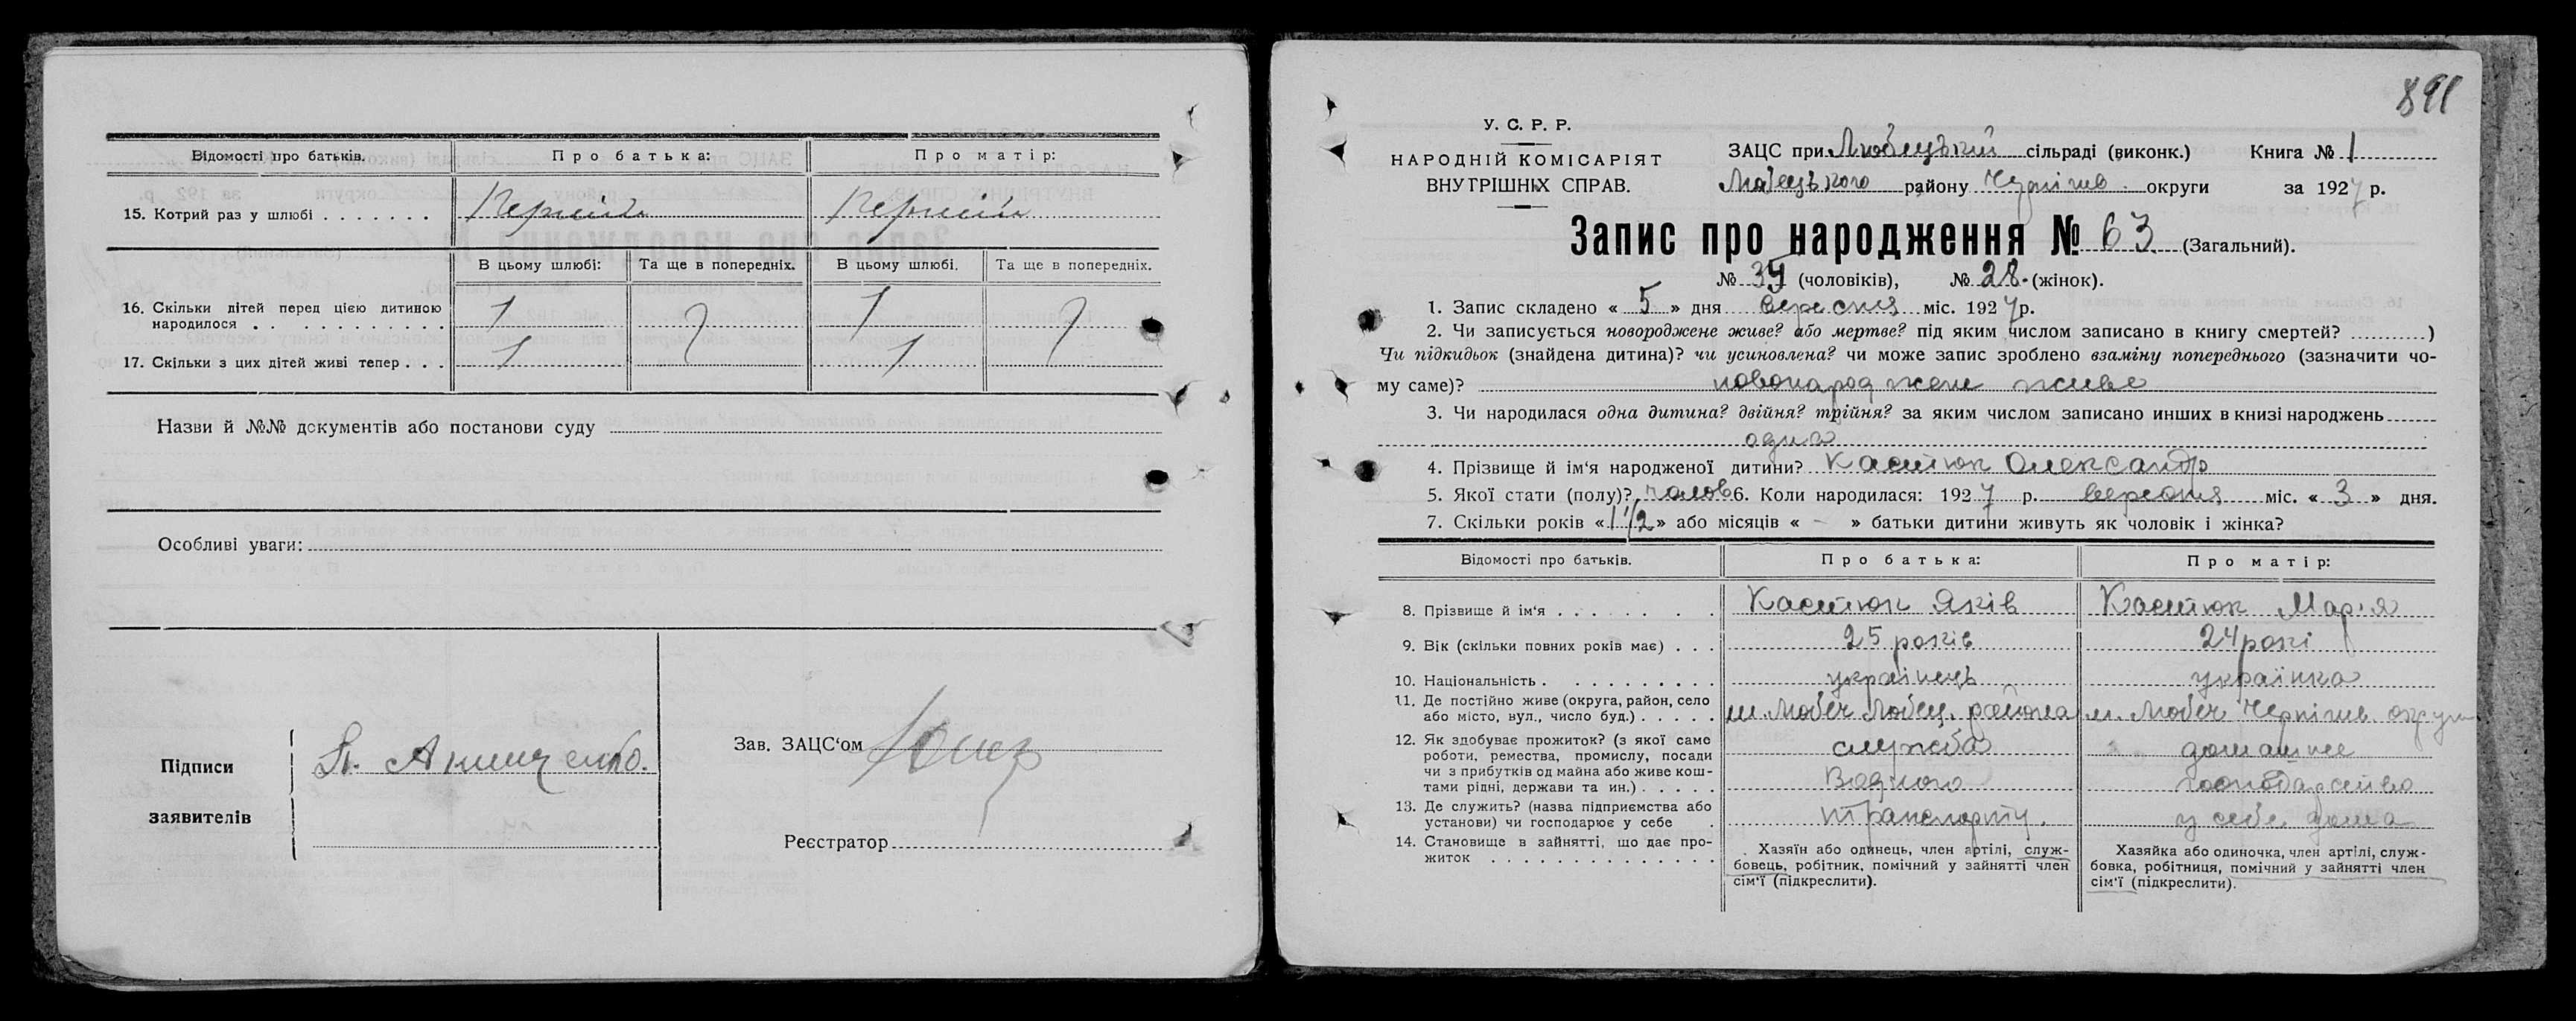 Відомості про батьків. Про батька: Про матір:
15. Котрий раз у шлюбі . . . . . . . Первий Первий
В цьому шлюбі: Та ще в попередніх. В цьому шлюбі. Та ще в попередніх.
16. Скільки дітей перед цією дитиною
народилося . . . . . . . . . . . . 1 1
17. Скільки з цих дітей живі тепер . . . 1 1
Назви й №№ документів або постанови суду
Особливі уваги:
Підписи
заявителів
Зав. ЗАЦС'ом
Реєстратор
891
У. С. Р. Р.
НАРОДНІЙ КОМІСАРІЯТ
ВНУТРІШНІХ СПРАВ.
ЗАЦС при Любецькій сільраді (виконк.) Книга № 1
Любецького району Чернігів. округи за 1927 р.
Запис про народження № 63 (Загальний).
№ 35 (чоловіків), № 28. (жінок).
1. Запис складено « 5 » дня вересня міс. 1927 р.
2. Чи записується новороджене живе? або мертве? під яким числом записано в книгу смертей? ............)
Чи підкидьок (знайдена дитина)? чи усиновлена? чи може запис зроблено взаміну попереднього (зазначити чо-
му саме)? новонароджене живе
3. Чи народилася одна дитина? двійня? трійня? за яким числом записано инших в книзі народжень
одна
4. Прізвище й ім'я народженої дитини? Касттюк Олександр
5. Якої стати (полу)? чолов 6. Коли народилася: 1927 р. вересня міс. « 3 » дня.
7. Скільки років « 1 1/2 » або місяців « - » батьки дитини живуть як чоловік і жінка?
Відомості про батьків. Про батька: Про матір:
8. Прізвище й ім'я . . . . . . . Касттюк Яків Касттюк Марія
9. Вік (скільки повних років має) . . . 25 років 24 роки
10. Національність . . . . . . . . . українець українка
11. Де постійно живе (округа, район, село
або місто, вул., число буд.) . . . . . м. Любеч Любец. района м. Любеч Чернігив. округи
12. Як здобуває прожиток? (з якої саме служба домашнє
роботи, ремества, промислу, посади
чи з прибутків од майна або живе кош- Водного господарство
тами рідні, держави та ин.) . . . . .
13. Де служить? (назва підприємства або
установи) чи господарює у себе . транспорту. у себе дома
14. Становище в зайнятті, що дає про-
житок . . . . . . . . . . . . . . .
Хазяїн або одинець, член артілі, служ-
бовець, робітник, помічний у зайнятті член
сім'ї (підкреслити).
Хазяйка або одиночка, член артілі, служ-
бовка, робітниця, помічний у зайнятті член
сім'ї (підкреслити).